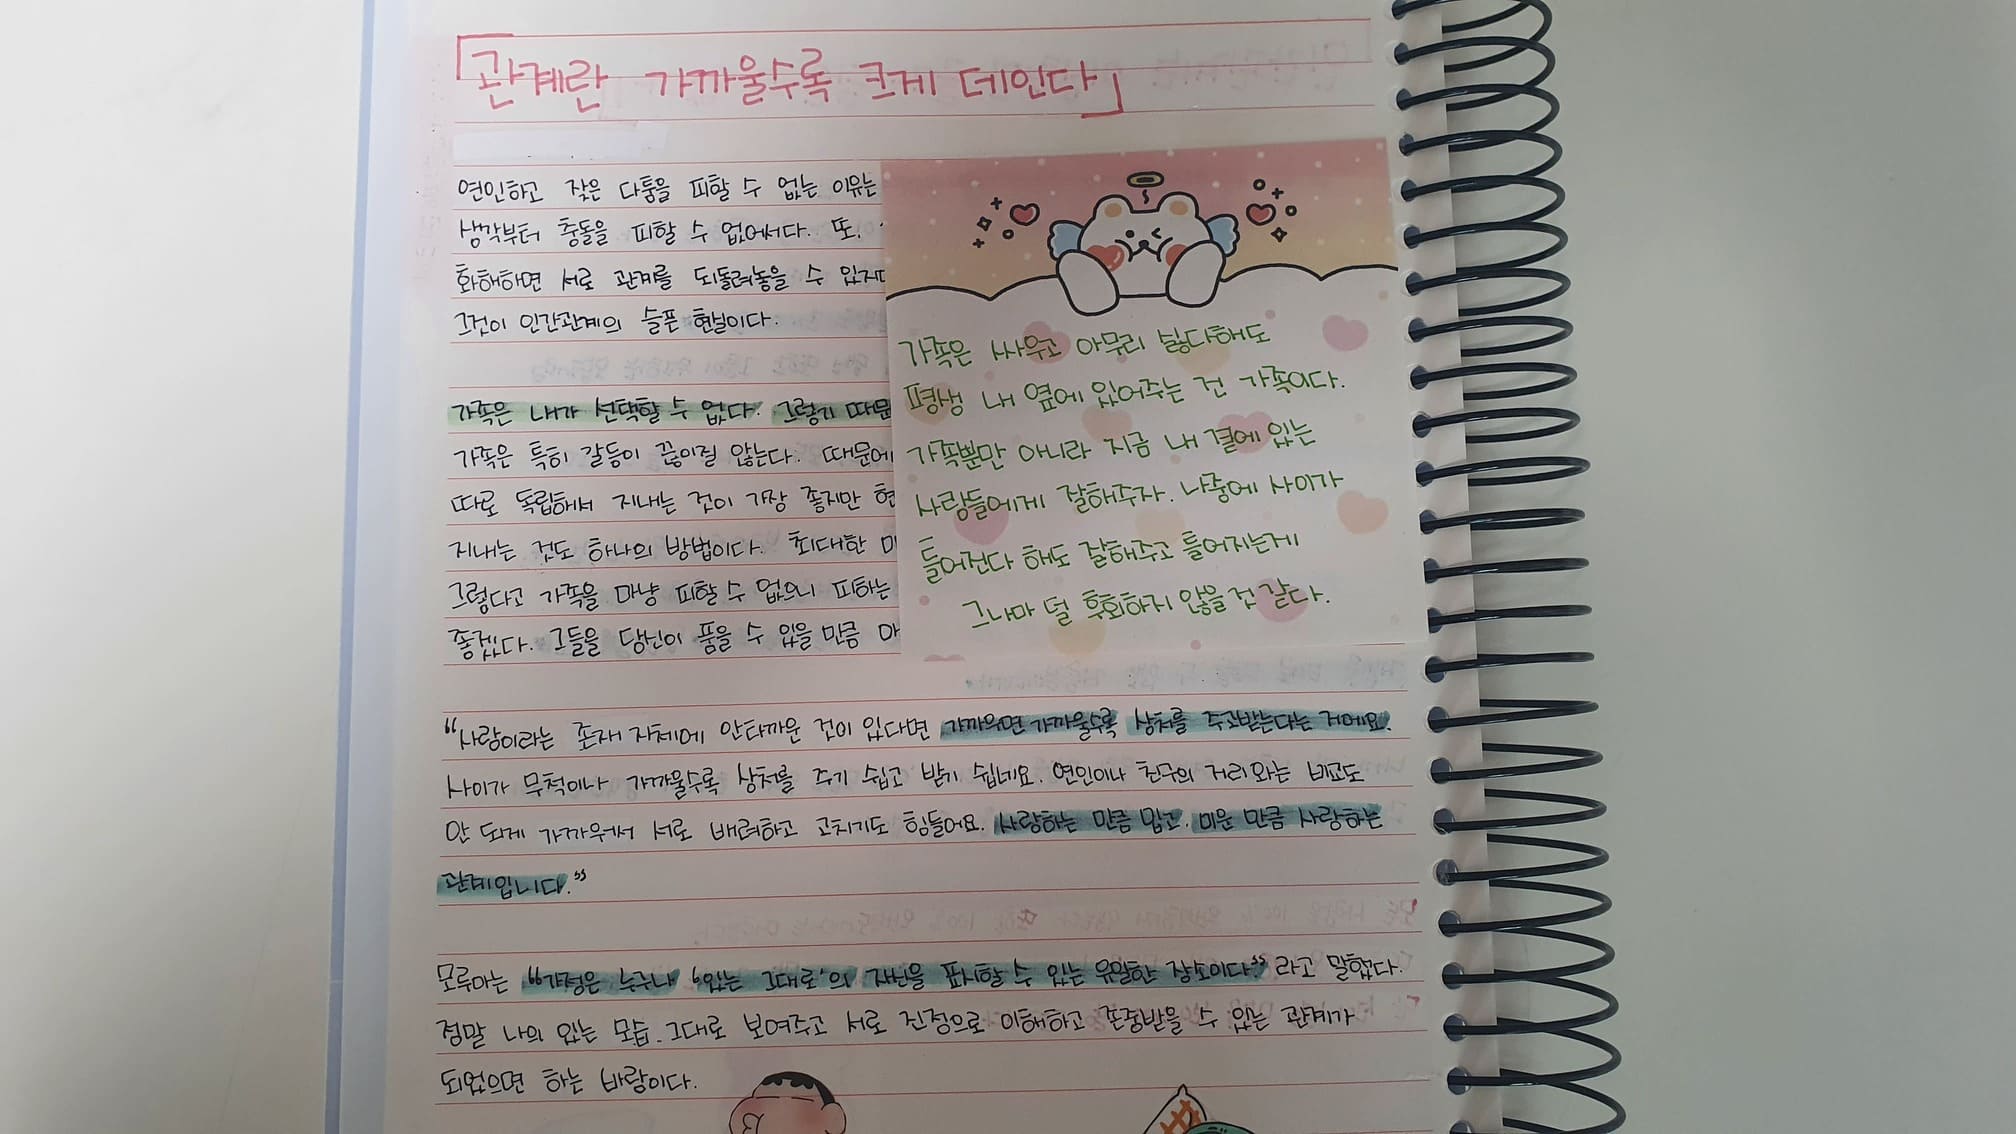 「관계란 가까울수록 크게 데인다」
연인하고 잦은 다툼을 피할 수 없는 이유는
생각부터 충돌을 피할 수 없어서다. 또,
화해하면 서로 관계를 되돌려놓을 수 있지
그것이 인간관계의 슬픈 현실이다.
가족은 내가 선택할 수 없다. 그렇기 때문
가족은 특히 갈등이 끊이질 않는다. 때문에
따로 독립해서 지내는 것이 가장 좋지만 현
지내는 것도 하나의 방법이다. 최대한
그렇다고 가족을 마냥 피할 수 없으니 피하는
좋겠다. 그들을 당신이 품을 수 있을 만큼
가족은 싸우고 아무리 싫다해도
평생 내 옆에 있어주는 건 가족이다.
가족뿐만 아니라 지금 내 곁에 있는
사람들에게 잘해주자. 나중에 사이가
틀어진다 해도 잘해주고 틀어지는게
그나마 덜 후회하지 않을 것 같다.
“사랑이라는 존재 자체에 안타까운 것이 있다면 가까우면 가까울수록 상처를 주고받는다는 거예요.
사이가 무척이나 가까울수록 상처를 주기 쉽고 받기 쉽네요. 연인이나 친구의 거리와는 비교도
안 되게 가까워서 서로 배려하고 고치기도 힘들어요. 사랑하는 만큼 밉고, 미운 만큼 사랑하는
관계입니다.”
모루아는 “가정은 누구나 ‘있는 그대로’의 자신을 표시할 수 있는 유일한 장소이다.” 라고 말했다.
정말 나의 있는 모습 그대로 보여주고 서로 진정으로 이해하고 존중받을 수 있는 관계가
되었으면 하는 바람이다.